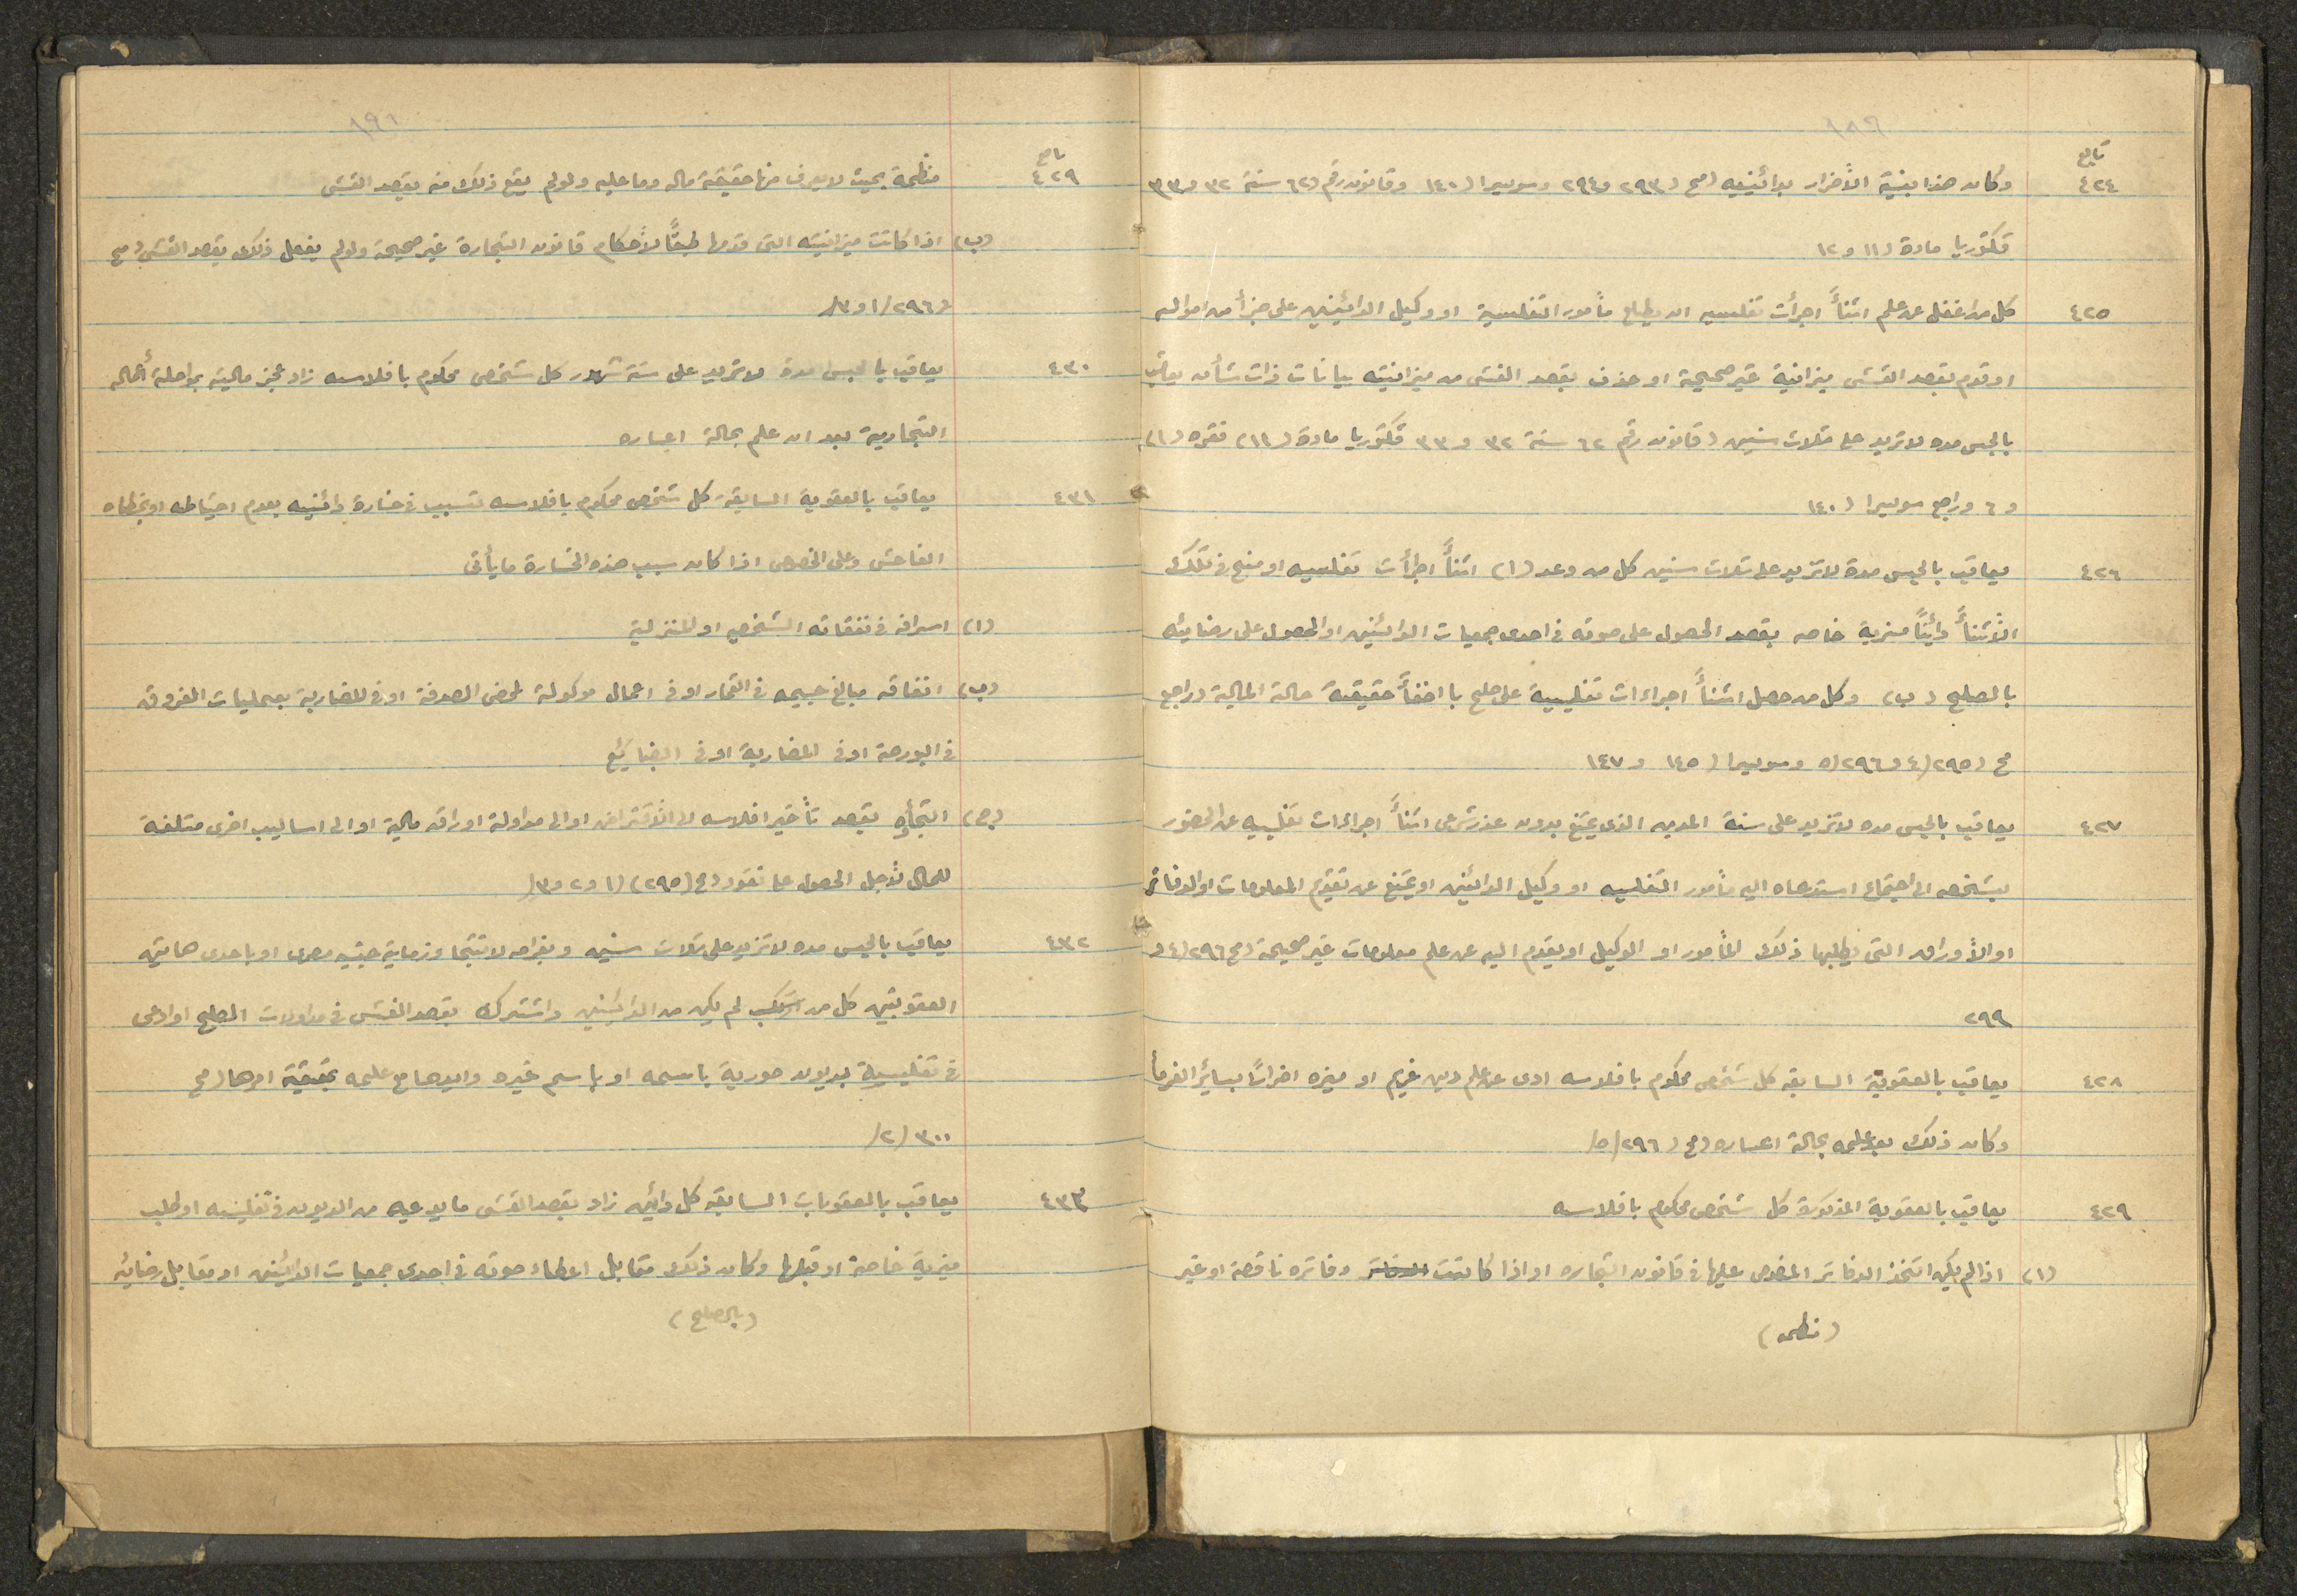 تابع
٤٢٤ وكان هذا بنية الأضرار بدائنيه (مح (٢٩٣ و٢٩٤ وسويسرا (١٤٠ وقانون رقم (٦٢ سنة ٣٢ و٣٣
فكتوريا مادة (١١ و١٢
٤٢٥ كل من اغفل عن علم اثنأً اجرأت تفليسه ان يطلع مأمور التفلسية او وكيل الدائنين على جزأ من امواله
او قدم بقصد الغش ميزانية غير صحيحة او حذف بقصد الغش من ميزانيته بيانات ذات شأن يعاقب
بالحبس مده لا تزيد على ثلاث سنين (قانون رقم ٦٢ سنة ٣٢ و ٣٣ فكتوريا مادة (١١) فقره (١)
و ٦ وراجع سويسرا (١٤٠
٤٢٦ يعاقب بالحبس مدة لا تزيد على ثلاث سنين كل من وعد (١) اثنأً اجرأت تفليسه او منح في تلك
الأثنأً دائنًا مزية خاصه بقصد الحصول على صوته في احدى جمعيات الدائنين او الحصول على رضائه
بالصلح (ب) وكل من حصل اثنأً اجراءات تفليسية على صلح باخفأً حقيقة حالة المالية (راجع
مح (٢٩٥/٤ و٢٩٦/٥ وسويسرا (١٤٥ و ١٤٧
٤٢٧ يعاقب بالحبس مده لا تزيد على سنة المدين الذى يمتنع بدون عذر شرعى اثنأً اجراءات تفليسه عن الحضور
بشخصه الى اجتماع استدعاه اليه مأمور التفليسه او وكيل الدائنين او يمتنع عن تقديم المعلومات او الدفاتر
او الأوراق التى يطلبها ذلك المأمور او الوكيل او يقدم اليه عن علم معلومات غير صحيحة (مح ٢٩٦/٤ و
٢٩٩
٤٢٨ يعاقب بالعقوبة السابقه كل شخص محكوم بافلاسه ادى عن علم دين غريم او ميزه اضرارًا بسائر الغرما
وكان ذلك بعد علمه بحالة اعساره (مح (٢٩٦/٥/
٤٢٩ يعاقب بالعقوبة المذكورة كل شخص محكوم بافلاسه
(١) اذا لم يكن اتخذ الدفاتر المنصوص عليها في قانون التجاره او اذا كانت الدفاتر دفاتره ناقصة او غير
(منظمه)
١٩١
تابع
٤٢٩ منظمة بحيث لا يعرف منها حقيقة ماله وما عليه ولو لم يقع ذلك منه بقصد الغش
(ب) اذا كانت ميزانيته التى قدمها طبقًا لأحكام قانون التجارة غير صحيحة ولو لم يفعل ذلك بقصد الغش (مح
(٢٩٦/١ و٣/
٤٣٠ يعاقب بالحبس مدة لا تزيد على ستة شهور كل شخص محكوم بافلاسه زاد عجز ماليته بمواصلة أعماله
التجارية بعد ان علم بحالة اعساره
٤٣١ يعاقب بالعقوبة السابقة كل شخص محكوم بافلاسه تسبب في خسارة دائنيه بعدم احتياطه او بخطاه
الفاحش وعلى الخصوص اذا كان سبب هذه الخسارة ما يأتى
(١) اسرافه في نفقاته الشخصيه او المنزلية
(ب) انفاقه مبالغ جسيمه في القمار او في اعمال موكولة لمحض الصدفة او في المضاربة بعمليات الفروق
في البورصة او في المضاربة او في البضايئع
(ج) التجأوه بقصد تأخير افلاسه الى الأقتراض او الى مداولة اوراق مالية او الى اساليب اخرى متلفة
للمال لأجل الحصول على نقود (مح (٢٩٥) (١ و٢ و٣/
٤٣٢ يعاقب بالحبس مده لا تزيد على ثلاث سنين وبغرامه لا تتجاوز ماية جنيه مصرى او باحدى هاتين
العقوبتين كل من لم يكن من الدائنين واشترك بقصد الغش في مداولات الصلح او ادعى
في تفليسة بديون صورية باسمه او باسم غيره وايدها مع علمه بحقيقة امرها (مح
٣٠٠ /٢/
٤٣٣ يعاقب بالعقوبات السابقه كل دائن زاد بقصد الغش ما يدعيه من الديون في تفليسه او طلب
مزية خاصة او قبلها وكان ذلك مقابل اعطاء صوته في احدى جمعيات الدائنين او مقابل رضائه
(بالصلح)